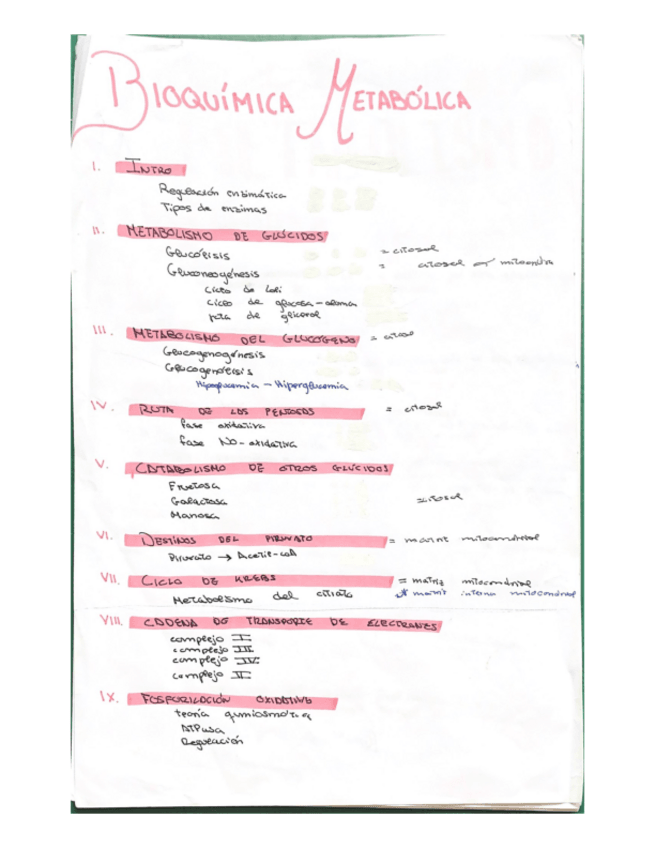 BIOQUÍMICA METABÓLICA
I. INTRO
Regulación enzimática
Tipos de enzimas
II. METABOLISMO DE GLÚCIDOS
Glucólisis = citosol
Gluconeogénesis = citosol y mitocondria
ciclo de Cori
ciclo de glucosa-alanina
ruta de glicerol
III. METABOLISMO DEL GLUCOGENO = citosol
Glucogenogénesis
Glucogenolisis
Hipoglucemia - Hiperglucemia
IV. RUTA DE LAS PENTOSAS = citosol
fase oxidativa
fase NO-oxidativa
V. CATABOLISMO DE OTROS GLÚCIDOS
Fructosa
Galactosa = citosol
Manosa
VI. DESTINOS DEL PIRUVATO = matriz mitocondrial
Piruvato → Acetil-CoA
VII. CICLO DE KREBS = matriz mitocondrial
Metabolismo del citrato * matriz interna mitocondrial
VIII. CADENA DE TRANSPORTE DE ELECTRONES
complejo I
complejo III
complejo IV
complejo II
IX. FOSFORILACIÓN OXIDATIVA
teoría quimiosmótica
ATPasa
Regulación